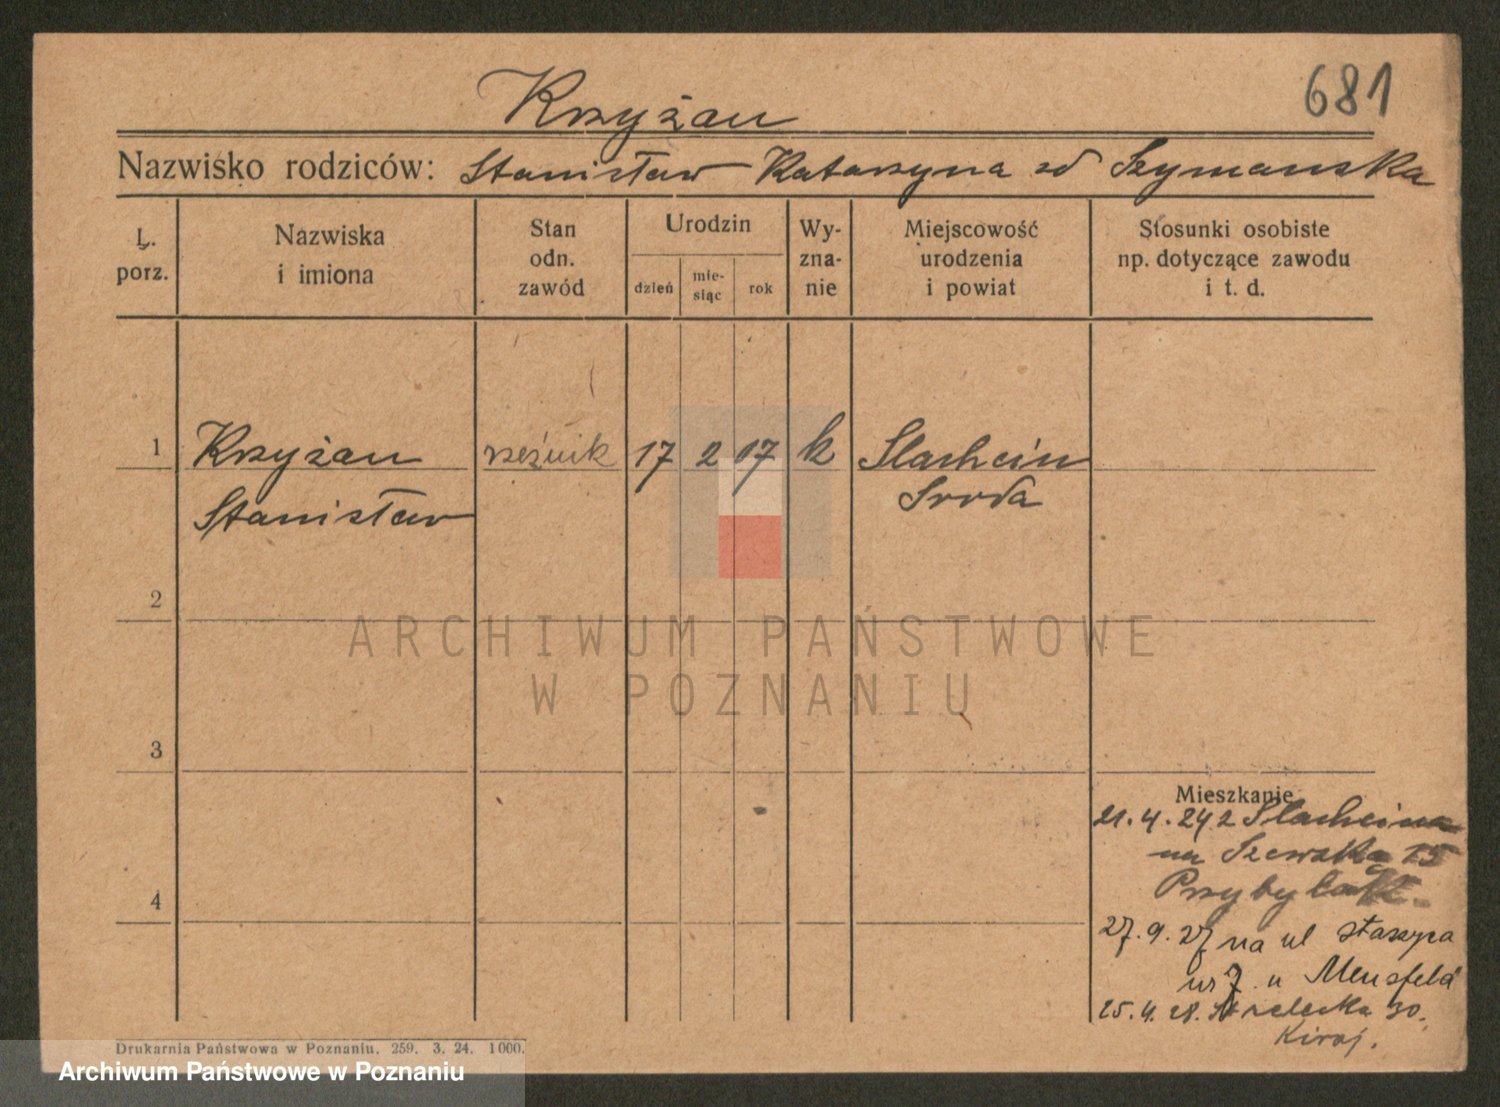 681
Krzyżan
Nazwisko rodziców: Stanisław Katarzyna zd Szymanska
L. porz.
Nazwiska i imiona
Stan odn. zawód
Urodzin
dzień
mie-siąc
rok
Wy-zna-nie
Miejscowość urodzenia i powiat
Stosunki osobiste np. dotyczące zawodu i t. d.
1 Krzyżan rzeźnik 17 2 17 k Slachcin
Stanisław Sroda
2
ARCHIWUM PAŃSTWOWE
W POZNANIU
3
Mieszkanie
21. 4. 24 z Slachcina
na Szewska 15
27. 9. 27 na ul Staszyca
nr 7 u Mensfeld
4
25. 4. 28. Strzelecka 30.
Drukarnia Państwowa w Poznaniu. 259. 3. 24. 1000.
Archiwum Państwowe w Poznaniu